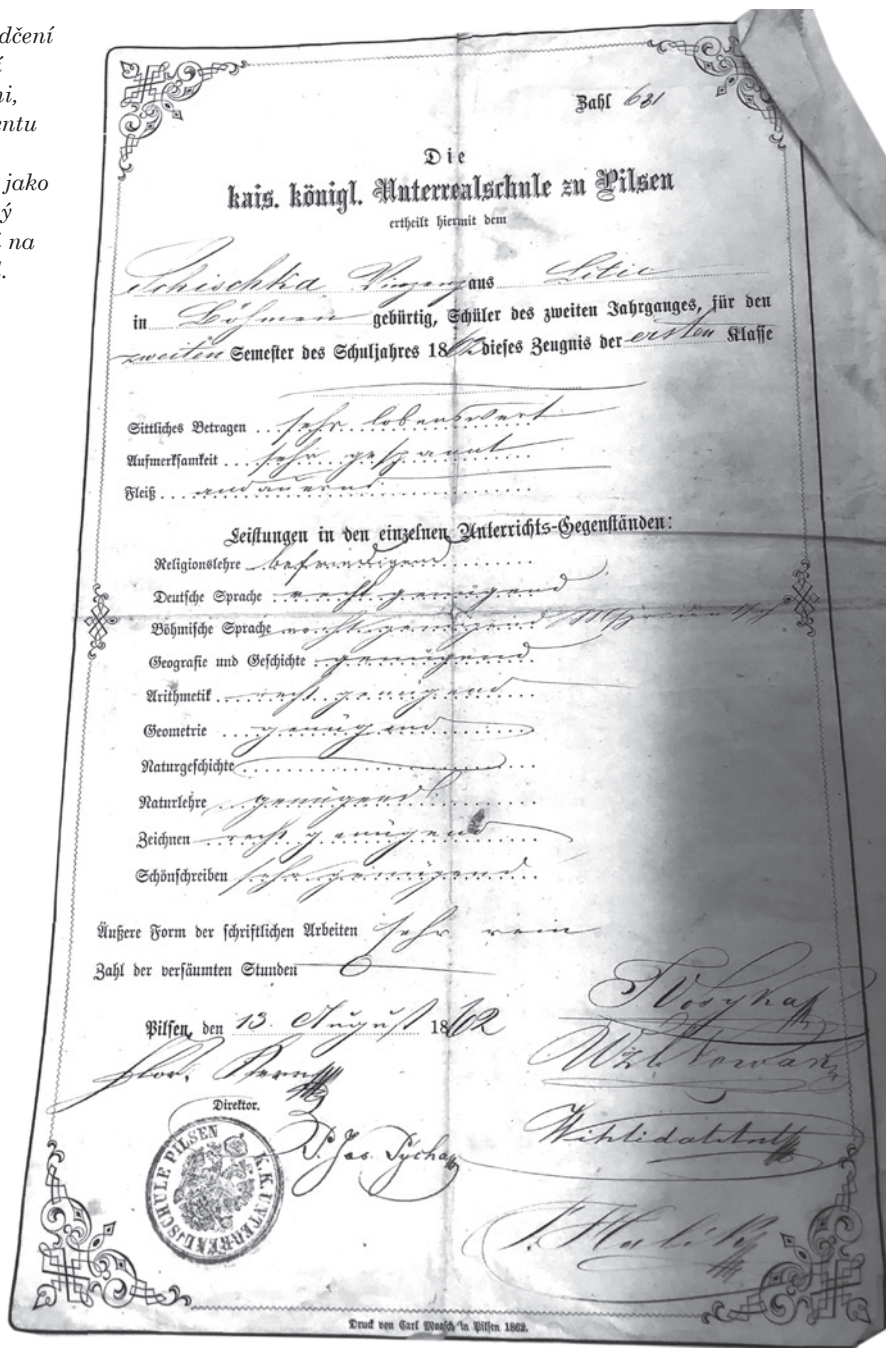 dčení
í
ni,
entu
jako
ý
na
.
Zahl 631
Die
kais. königl. Unterrealschule zu Pilsen
ertheilt hiermit dem
Schischka Vinzenz aus Litic
in Böhmen gebürtig, Schüler des zweiten Jahrganges, für den
zweiten Semester des Schuljahres 1862 dieses Zeugnis der ersten Klasse
Sittliches Betragen sehr lobenswert
Aufmerksamkeit sehr gespannt
Fleiß andauernd
Leistungen in den einzelnen Unterrichts-Gegenständen:
Religionslehre befriedigend
Deutsche Sprache recht genügend
Böhmische Sprache recht genügend
Geografie und Geschichte genügend
Arithmetik recht genügend
Geometrie genügend
Naturgeschichte
Naturlehre genügend
Zeichnen recht genügend
Schönschreiben sehr genügend
Äußere Form der schriftlichen Arbeiten sehr rein
Zahl der versäumten Stunden 0
Pilsen, den 13. August 1862
Flor.
Direktor.
P. Jos.
K. K. UNTER-REALSCHULE PILSEN
Druck von Carl Maasch in Pilsen 1862.